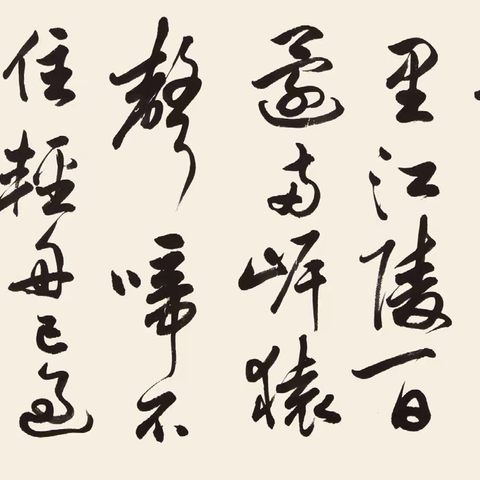 里江陵一日
還両岸猿
聲啼不
住輕舟已過